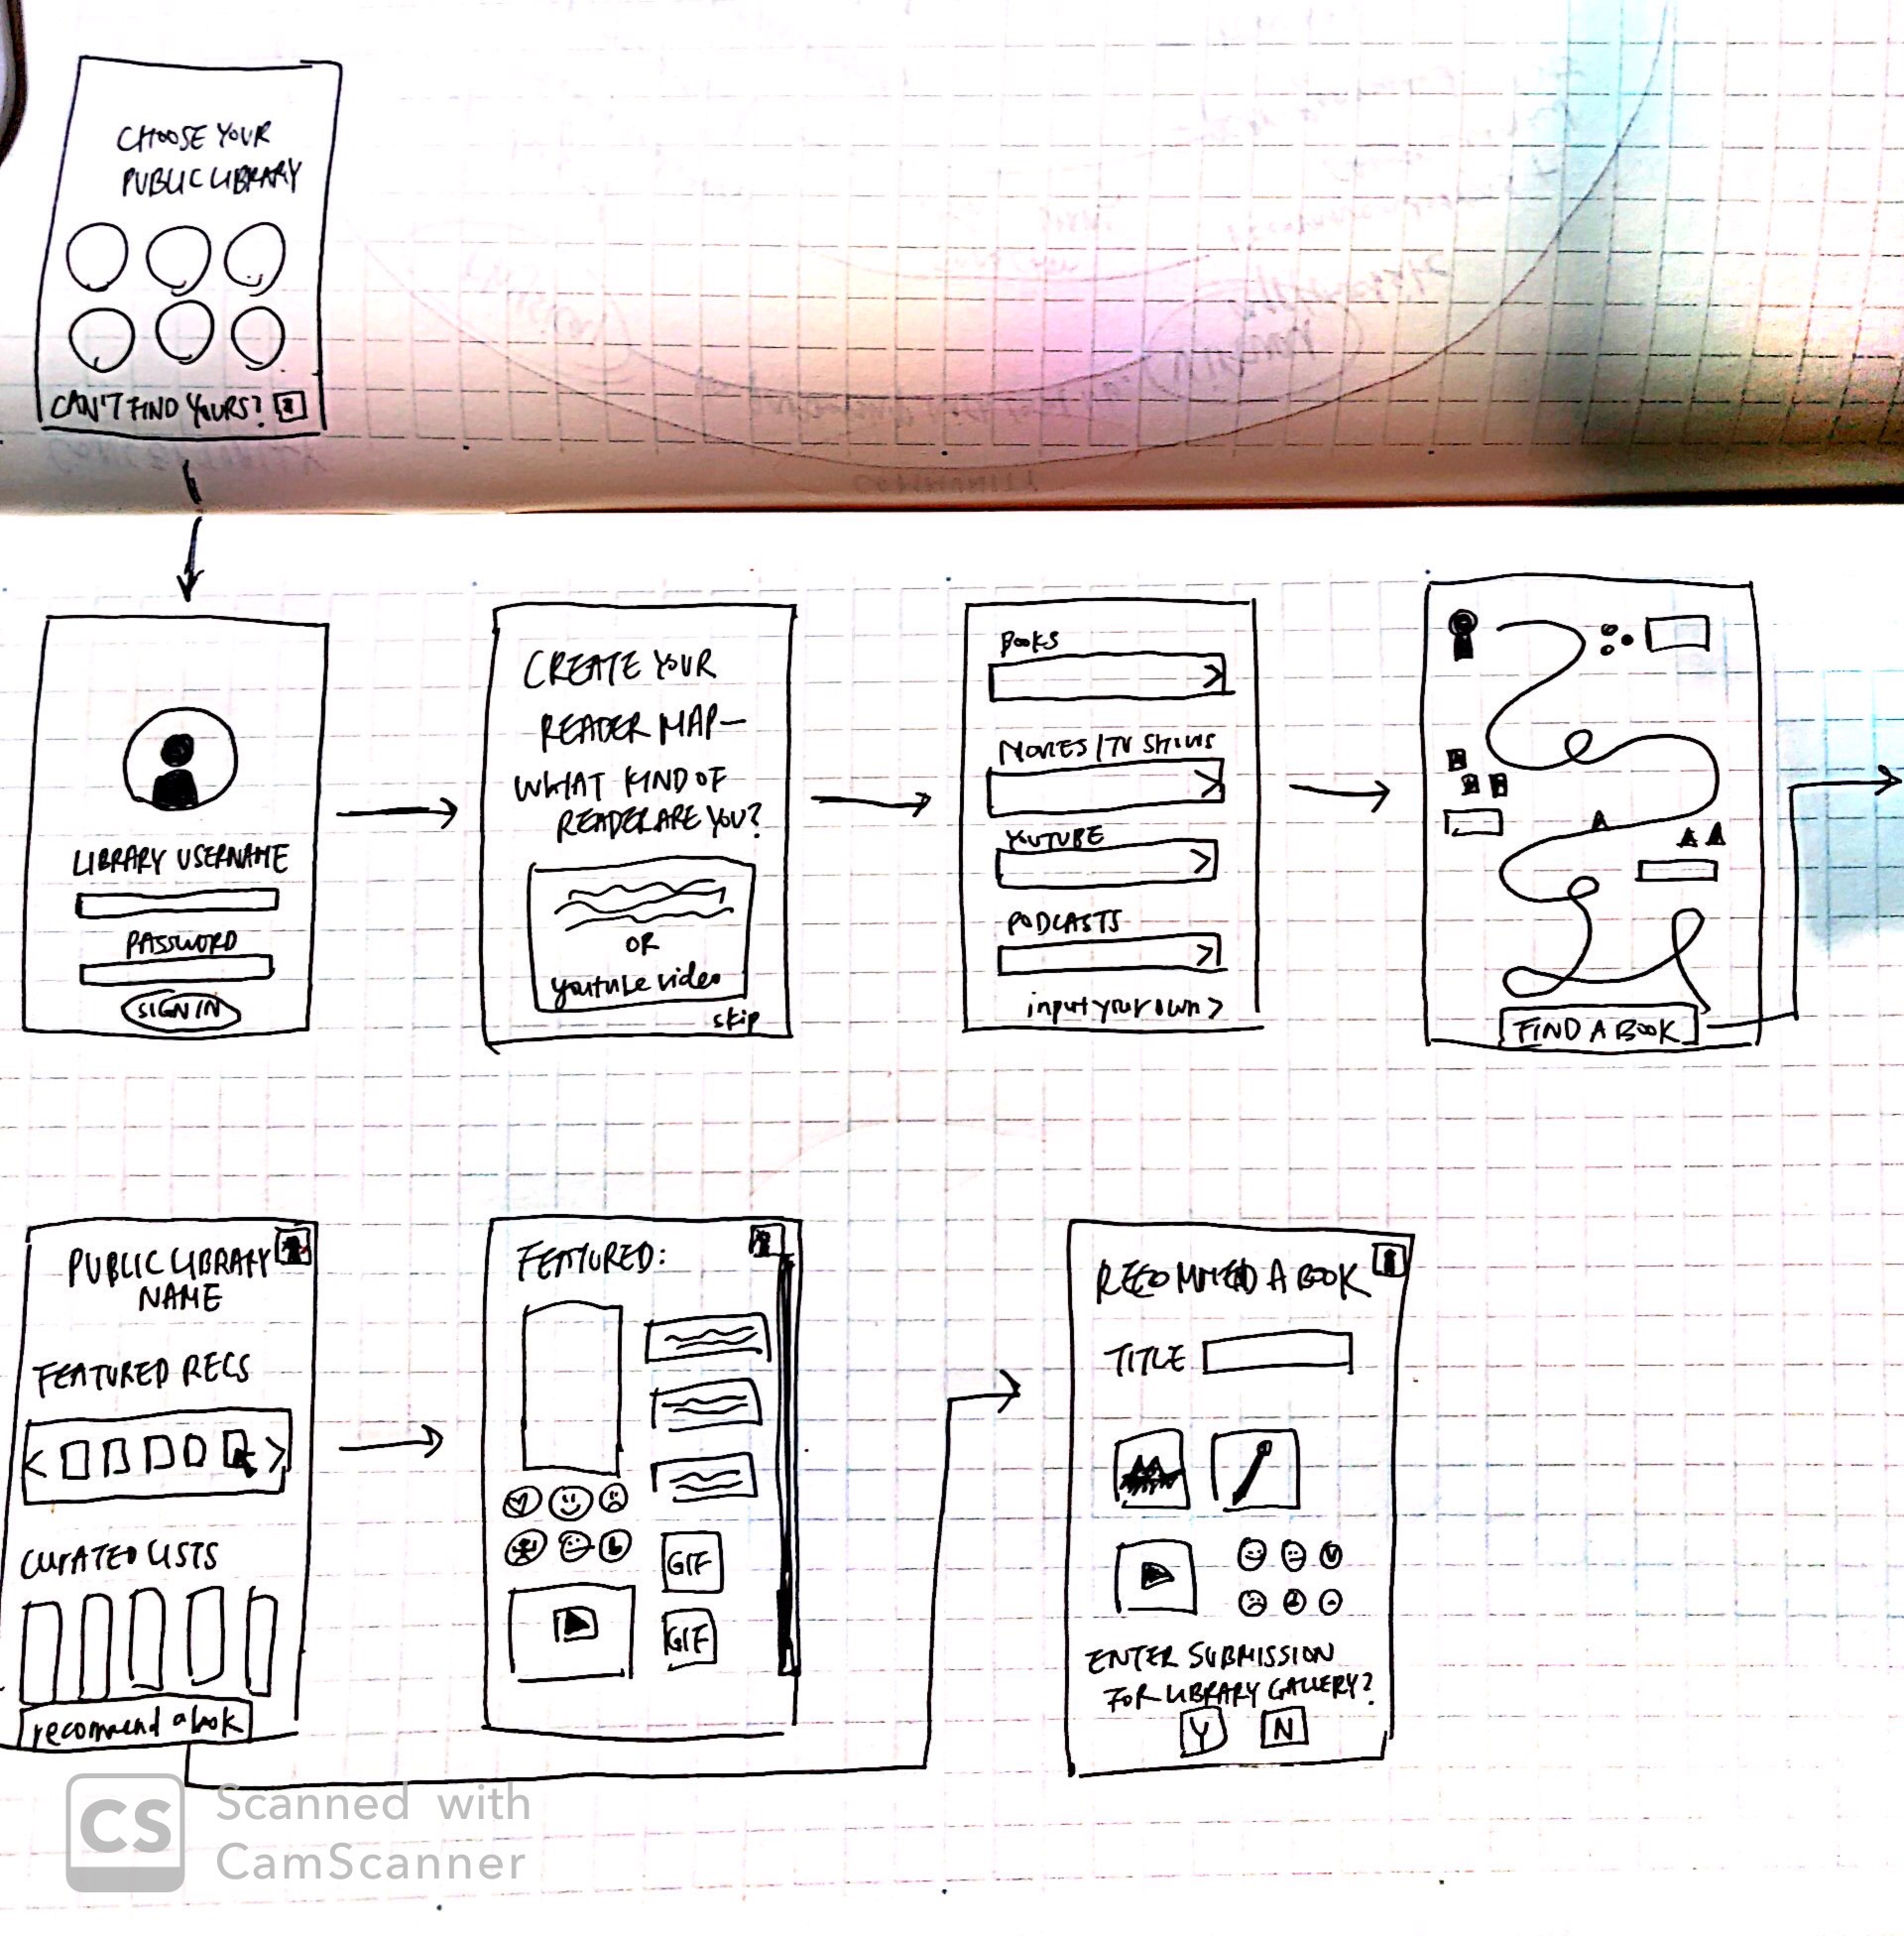 CHOOSE YOUR
PUBLIC LIBRARY
CAN'T FIND YOURS?
LIBRARY USERNAME
PASSWORD
SIGN IN
CREATE YOUR
READER MAP—
WHAT KIND OF
READER ARE YOU?
OR
youtube video
skip
BOOKS
MOVIES/TV SHOWS
YOUTUBE
PODCASTS
input your own >
FIND A BOOK
PUBLIC LIBRARY
NAME
FEATURED RECS
CURATED LISTS
recommend a book
FEATURED:
GIF
GIF
RECOMMEND A BOOK
TITLE
ENTER SUBMISSION
FOR LIBRARY GALLERY?
Y N
CS Scanned with
CamScanner